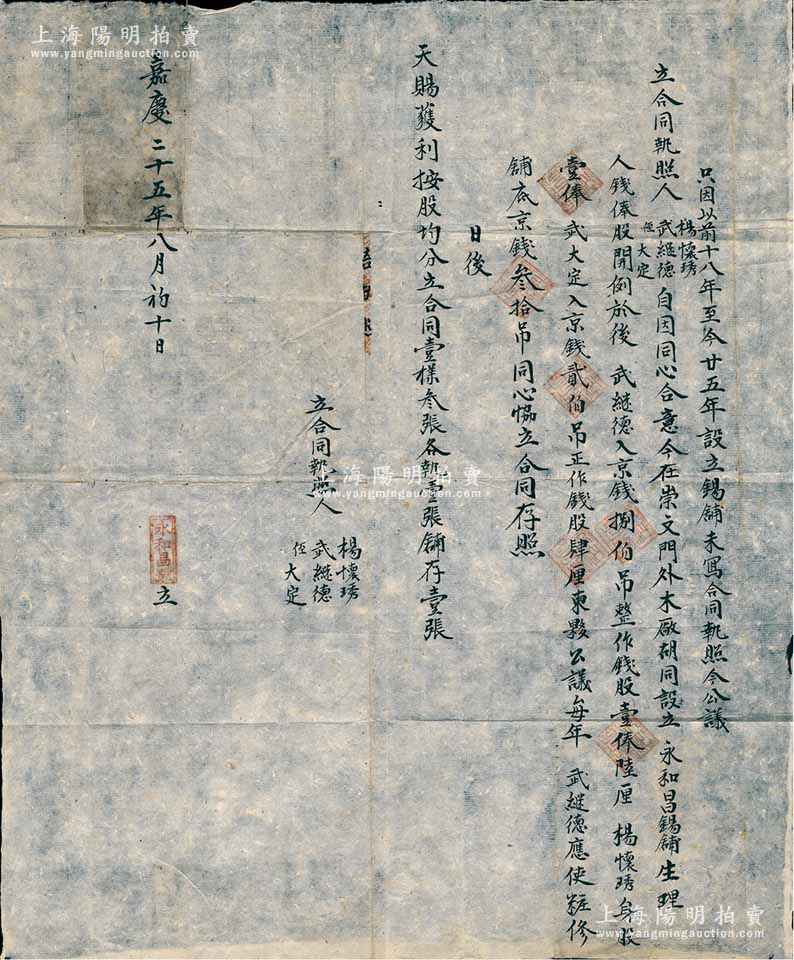 上海陽明拍賣
www.yangmingauction.com
只因以前十八年至今廿五年設立錫舖未寫合同執照今公議
立合同執照人 楊懷琇 武繼德 侄大定 自因同心合意今在崇文門外木廠胡同設立 永和昌錫舖生理
人錢俸股開例於後 武継德入京錢捌伯吊整作錢股壹俸陸厘 楊懷琇身股
壹俸 武大定入京錢貳伯吊正作錢股肆厘東夥公議每年 武継德應使粧修
舖底京錢叁拾吊同心恊立合同存照
日後
天賜獲利按股均分立合同壹樣叁張各執壹張舖存壹張
立合同執照人 楊懷琇 武繼德 侄大定
永和昌
立
嘉慶二十五年八月初十日
上海陽明拍賣
www.yangmingauction.com
上海陽明拍賣
www.yangmingauction.com